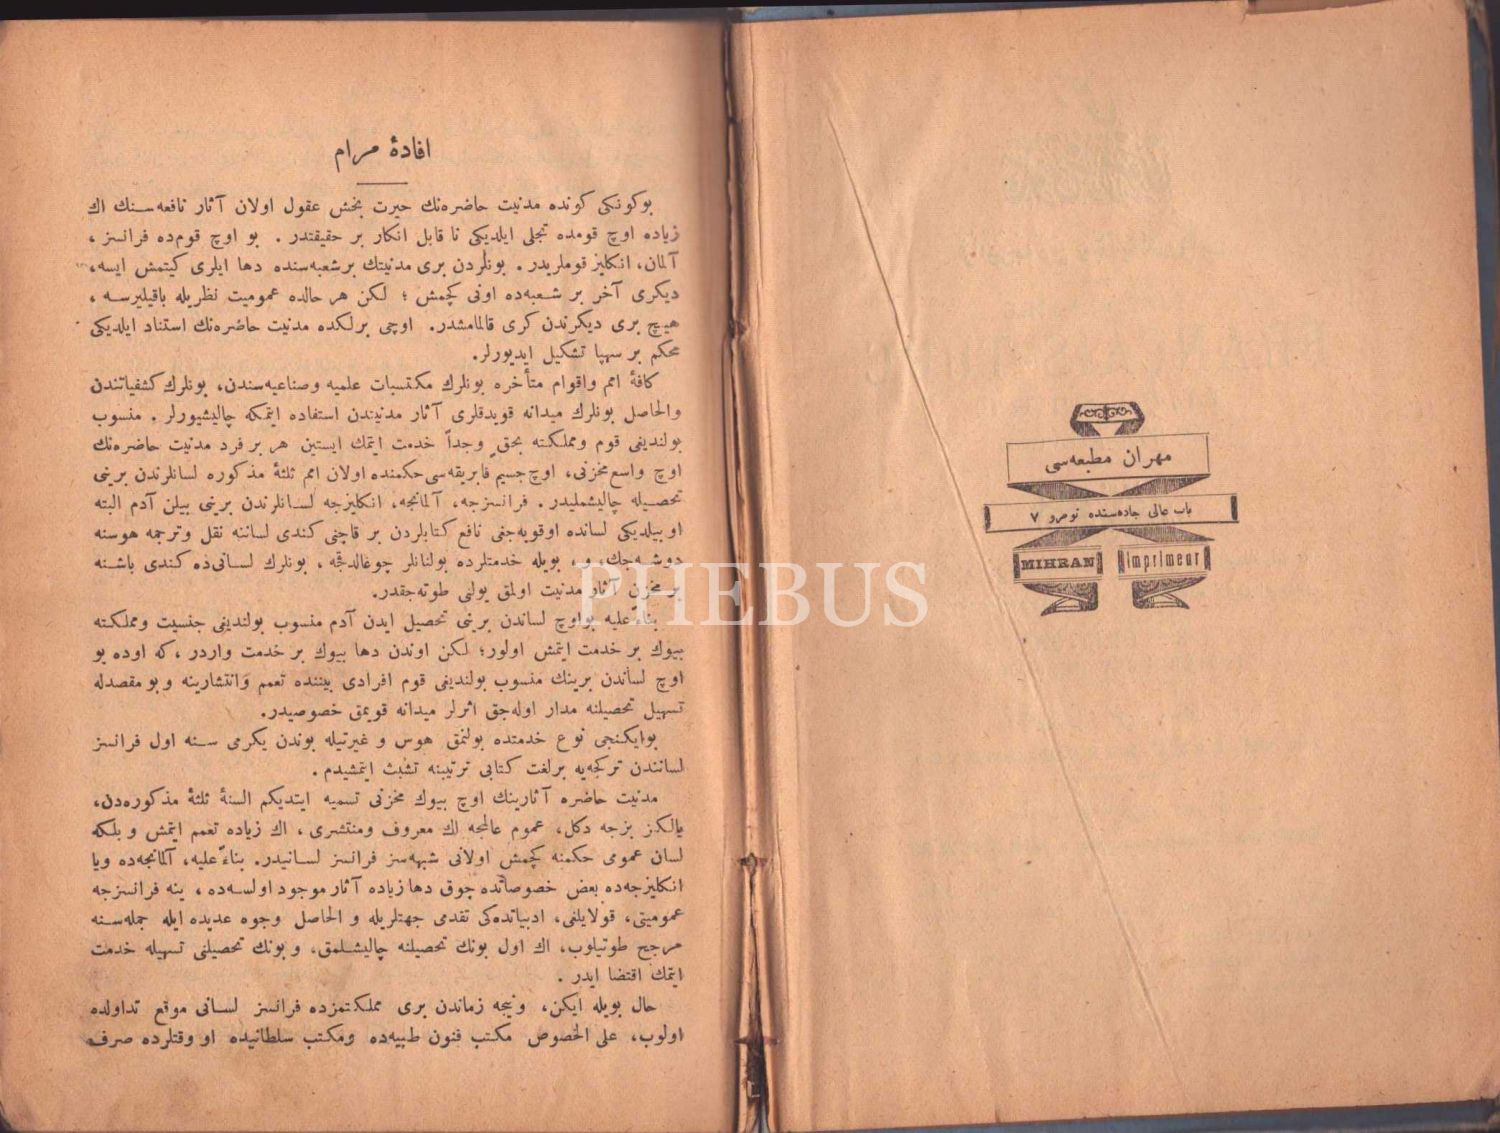 مهران مطبعه‌سی
باب عالی جاده‌سنده نومرو ۷
MIHRAN imprimeur
افادۀ مرام
بوكونكی كونده مدنیت حاضره‌نك حیرت بخش عقول اولان آثار نافعه‌سنك اك
زیاده اوچ قومده تجلی ایلدیكی نا قابل انكار بر حقیقتدر . بو اوچ قوم‌ده فرانسز ،
آلمان، انكلیز قوملریدر . بونلردن بری مدنیتك بر شعبه‌سنده دها ایلری كیتمش ایسه،
دیكری آخر بر شعبه‌ده اونی كچمش ؛ لكن هر حالده عمومیت نظریله باقیلیرسه ،
هیچ بری دیكرندن كری قالمامشدر. اوچی برلكده مدنیت حاضره‌نك استناد ایلدیكی
محكم بر سهپا تشكیل ایدیورلر.
كافۀ امم واقوام متأخره بونلرك مكتسبات علمیه وصناعیه‌سندن، بونلرك كشفیاتندن
والحاصل بونلرك میدانه قویدقلری آثار مدنیتدن استفاده ایتمكه چالیشیورلر . منسوب
بولندیغی قوم ومملكته بحق وجداً خدمت ایتمك ایستین هر بر فرد مدنیت حاضره‌نك
اوچ واسع مخزنی، اوچ جسیم فابریقه‌سی حكمنده اولان امم ثلثۀ مذكوره لسانلرندن برینی
تحصیله چالیشملیدر . فرانسزجه، آلمانجه، انكلیزجه لسانلرندن برینی بیلن آدم البته
او بیلدیكی لسانده اوقویه‌جغی نافع كتابلردن بر قاچنی كندی لساننه نقل وترجمه هوسنه
دوشه‌جك، و بویله خدمتلرده بولنانلر چوغالدقجه ، بونلرك لسانی‌ده كندی باشنه
بر مخزن آثار مدنیت اولمق یولنی طوته‌جقدر.
بناءً علیه بو اوچ لساندن برینی تحصیل ایدن آدم منسوب بولندیغی جنسیت ومملكته
بیوك بر خدمت ایتمش اولور؛ لكن اوندن دها بیوك بر خدمت واردر ، كه اوده بو
اوچ لساندن برینك منسوب بولندیغی قوم افرادی بیننده تعمم وانتشارینه و بو مقصدله
تسهیل تحصیلنه مدار اوله‌جق اثرلر میدانه قویمق خصوصیدر.
بو ایكنجی نوع خدمتده بولنمق هوس و غیرتیله بوندن یكرمی سنه اول فرانسز
لسانندن تركجه‌یه بر لغت كتابی ترتیبنه تشبث ایتمشیدم .
مدنیت حاضره آثارینك اوچ بیوك مخزنی تسمیه ایتدیكم السنۀ ثلثۀ مذكوره‌دن،
یالكز بزجه دكل، عموم عالمجه اك معروف ومنتشری ، اك زیاده تعمم ایتمش و بلكه
لسان عمومی حكمنه كچمش اولانی شبهه‌سز فرانسز لسانیدر. بناءً علیه، آلمانجه‌ده ویا
انكلیزجه‌ده بعض خصوصاتده چوق دها زیاده آثار موجود اولسه‌ده ، ینه فرانسزجه
عمومیتی، قولایلغی، ادبیاتده‌كی تقدمی جهتلریله و الحاصل وجوه عدیده ایله جمله‌سنه
مرجح طوتیلوب، اك اول بونك تحصیلنه چالیشلمق، و بونك تحصیلنی تسهیله خدمت
ایتمك اقتضا ایدر .
حال بویله ایكن، ونیجه زماندن بری مملكتمزده فرانسز لسانی موقع تداولده
اولوب، علی الخصوص مكتب فنون طبیه‌ده ومكتب سلطانیده او وقتلرده صرف
PHEBUS